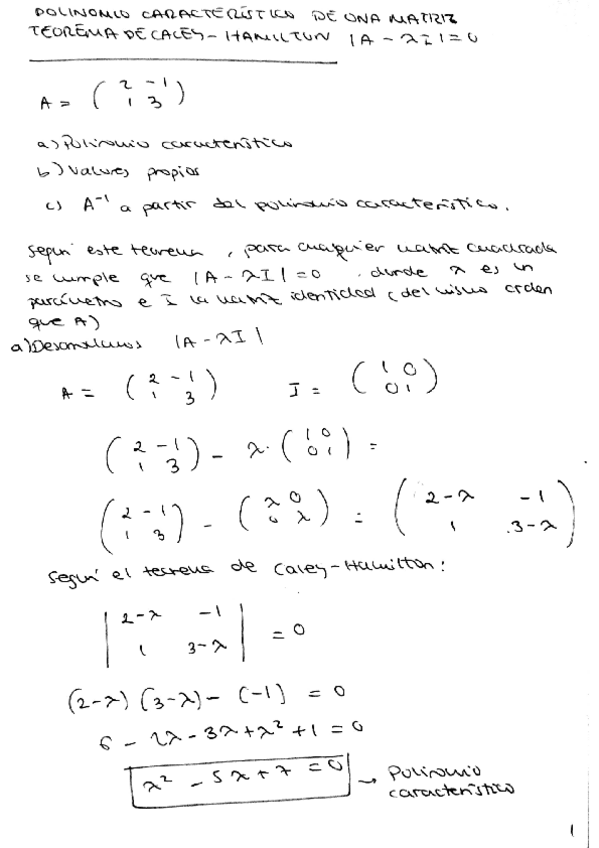 POLINOMIO CARACTERÍSTICO DE UNA MATRIZ
TEOREMA DE CALEY-HAMILTON |A - λI| = 0
A = ( 2 -1
1 3 )
a) Polinomio característico
b) Valores propios
c) A⁻¹ a partir del polinomio característico.
Según este teorema, para cualquier matriz cuadrada
se cumple que |A - λI| = 0 . donde λ es un
parámetro e I la matriz identidad (del mismo orden
que A)
a) Desarrollamos |A - λI|
A = ( 2 -1 I = ( 1 0
1 3 ) 0 1 )
( 2 -1 ) - λ · ( 1 0 ) =
1 3 0 1
( 2 -1 ) - ( λ 0 ) = ( 2-λ -1 )
1 3 0 λ 1 3-λ
Según el teorema de Caley-Hamilton:
| 2-λ -1 |
| 1 3-λ | = 0
(2-λ) (3-λ) - (-1) = 0
6 - 2λ - 3λ + λ² + 1 = 0
λ² - 5λ + 7 = 0 → Polinomio
característico
1